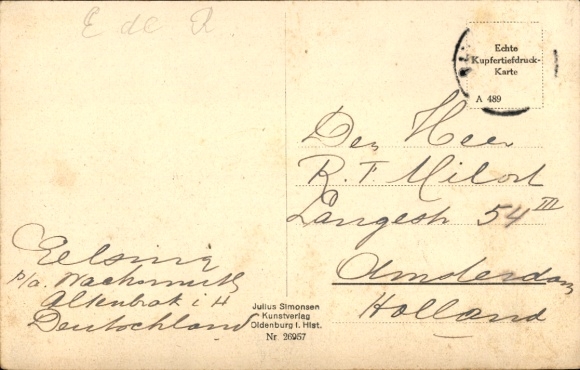 E de R.
Echte
Kupfertiefdruck-
Karte
A 489
Den Heer
R. F. Milort
Langestr 54 III
Amsterdam
Holland
p/a. Wachsmuth
i H
Deutschland
Julius Simonsen
Kunstverlag
Oldenburg i. Hlst.
Nr. 26957